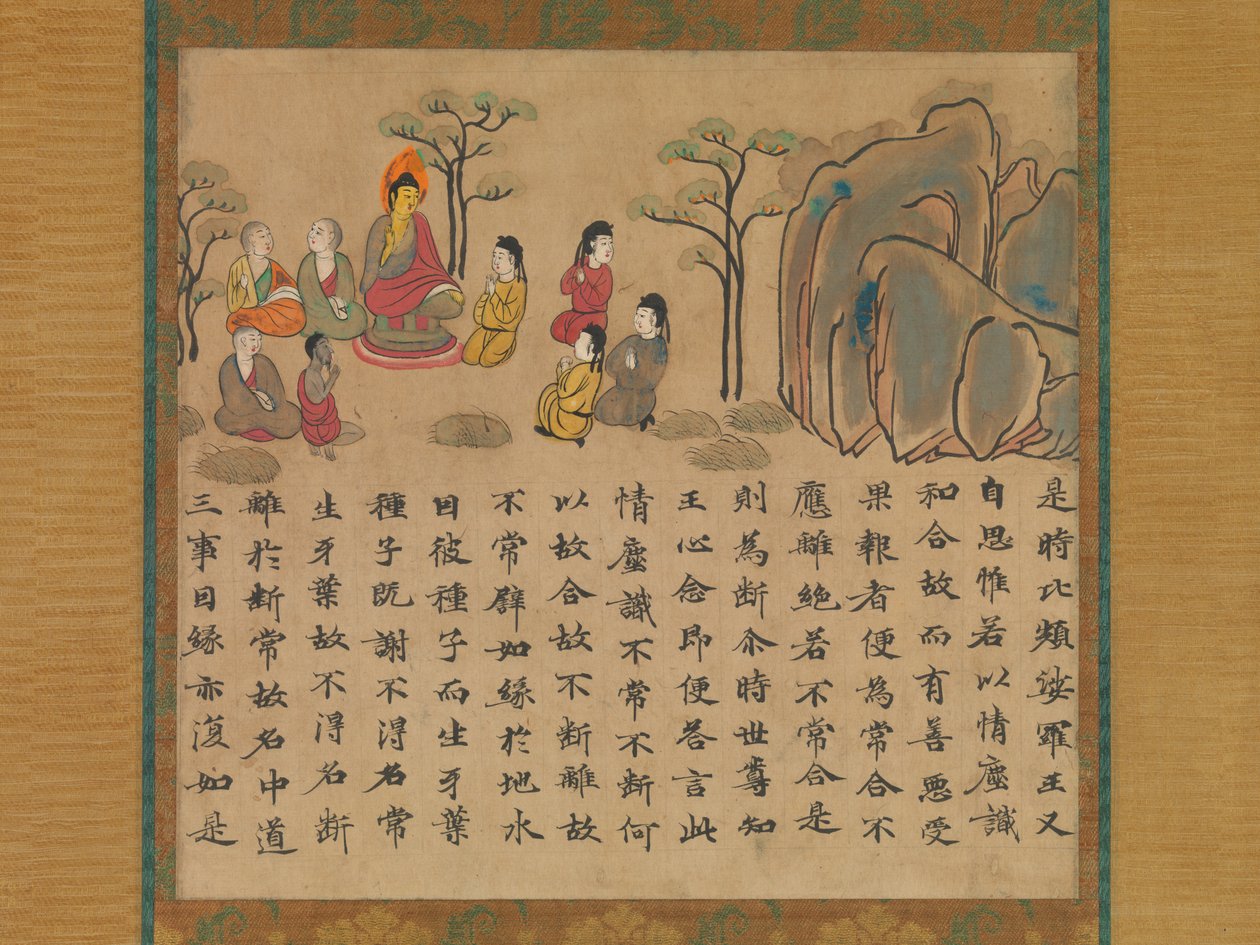 是時比頻娑羅王又
自思惟若以情塵識
和合故而有善悪受
果報者便為常合不
應離絶若不常合是
則為断尒時世尊知
王心念即便荅言此
情塵識不常不断何
以故合故不断離故
不常譬如縁於地水
因彼種子而生牙葉
種子既謝不得名常
生牙葉故不得名断
離於断常故名中道
三事因縁亦復如是